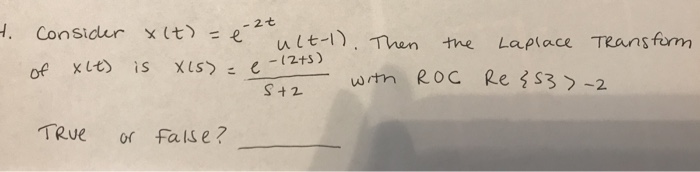 1. Consider x(t) = e^-2t u(t-1). Then the Laplace Transform
of x(t) is X(s) = e^-(2+s) / s+2 with ROC Re {s} > -2
TRUE or False? ______